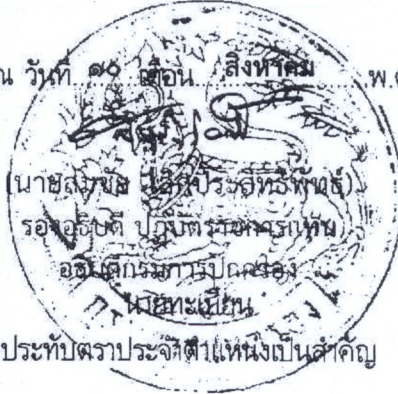 ณ วันที่ ๑๐ เดือน สิงหาคม พ.
(นายสมชัย
รองอธิบดี ปฏิบัติราชการแทน
อธิบดีกรมการปกครอง
นายทะเบียน
ประทับตราประจำตำแหน่งเป็นสำคัญ